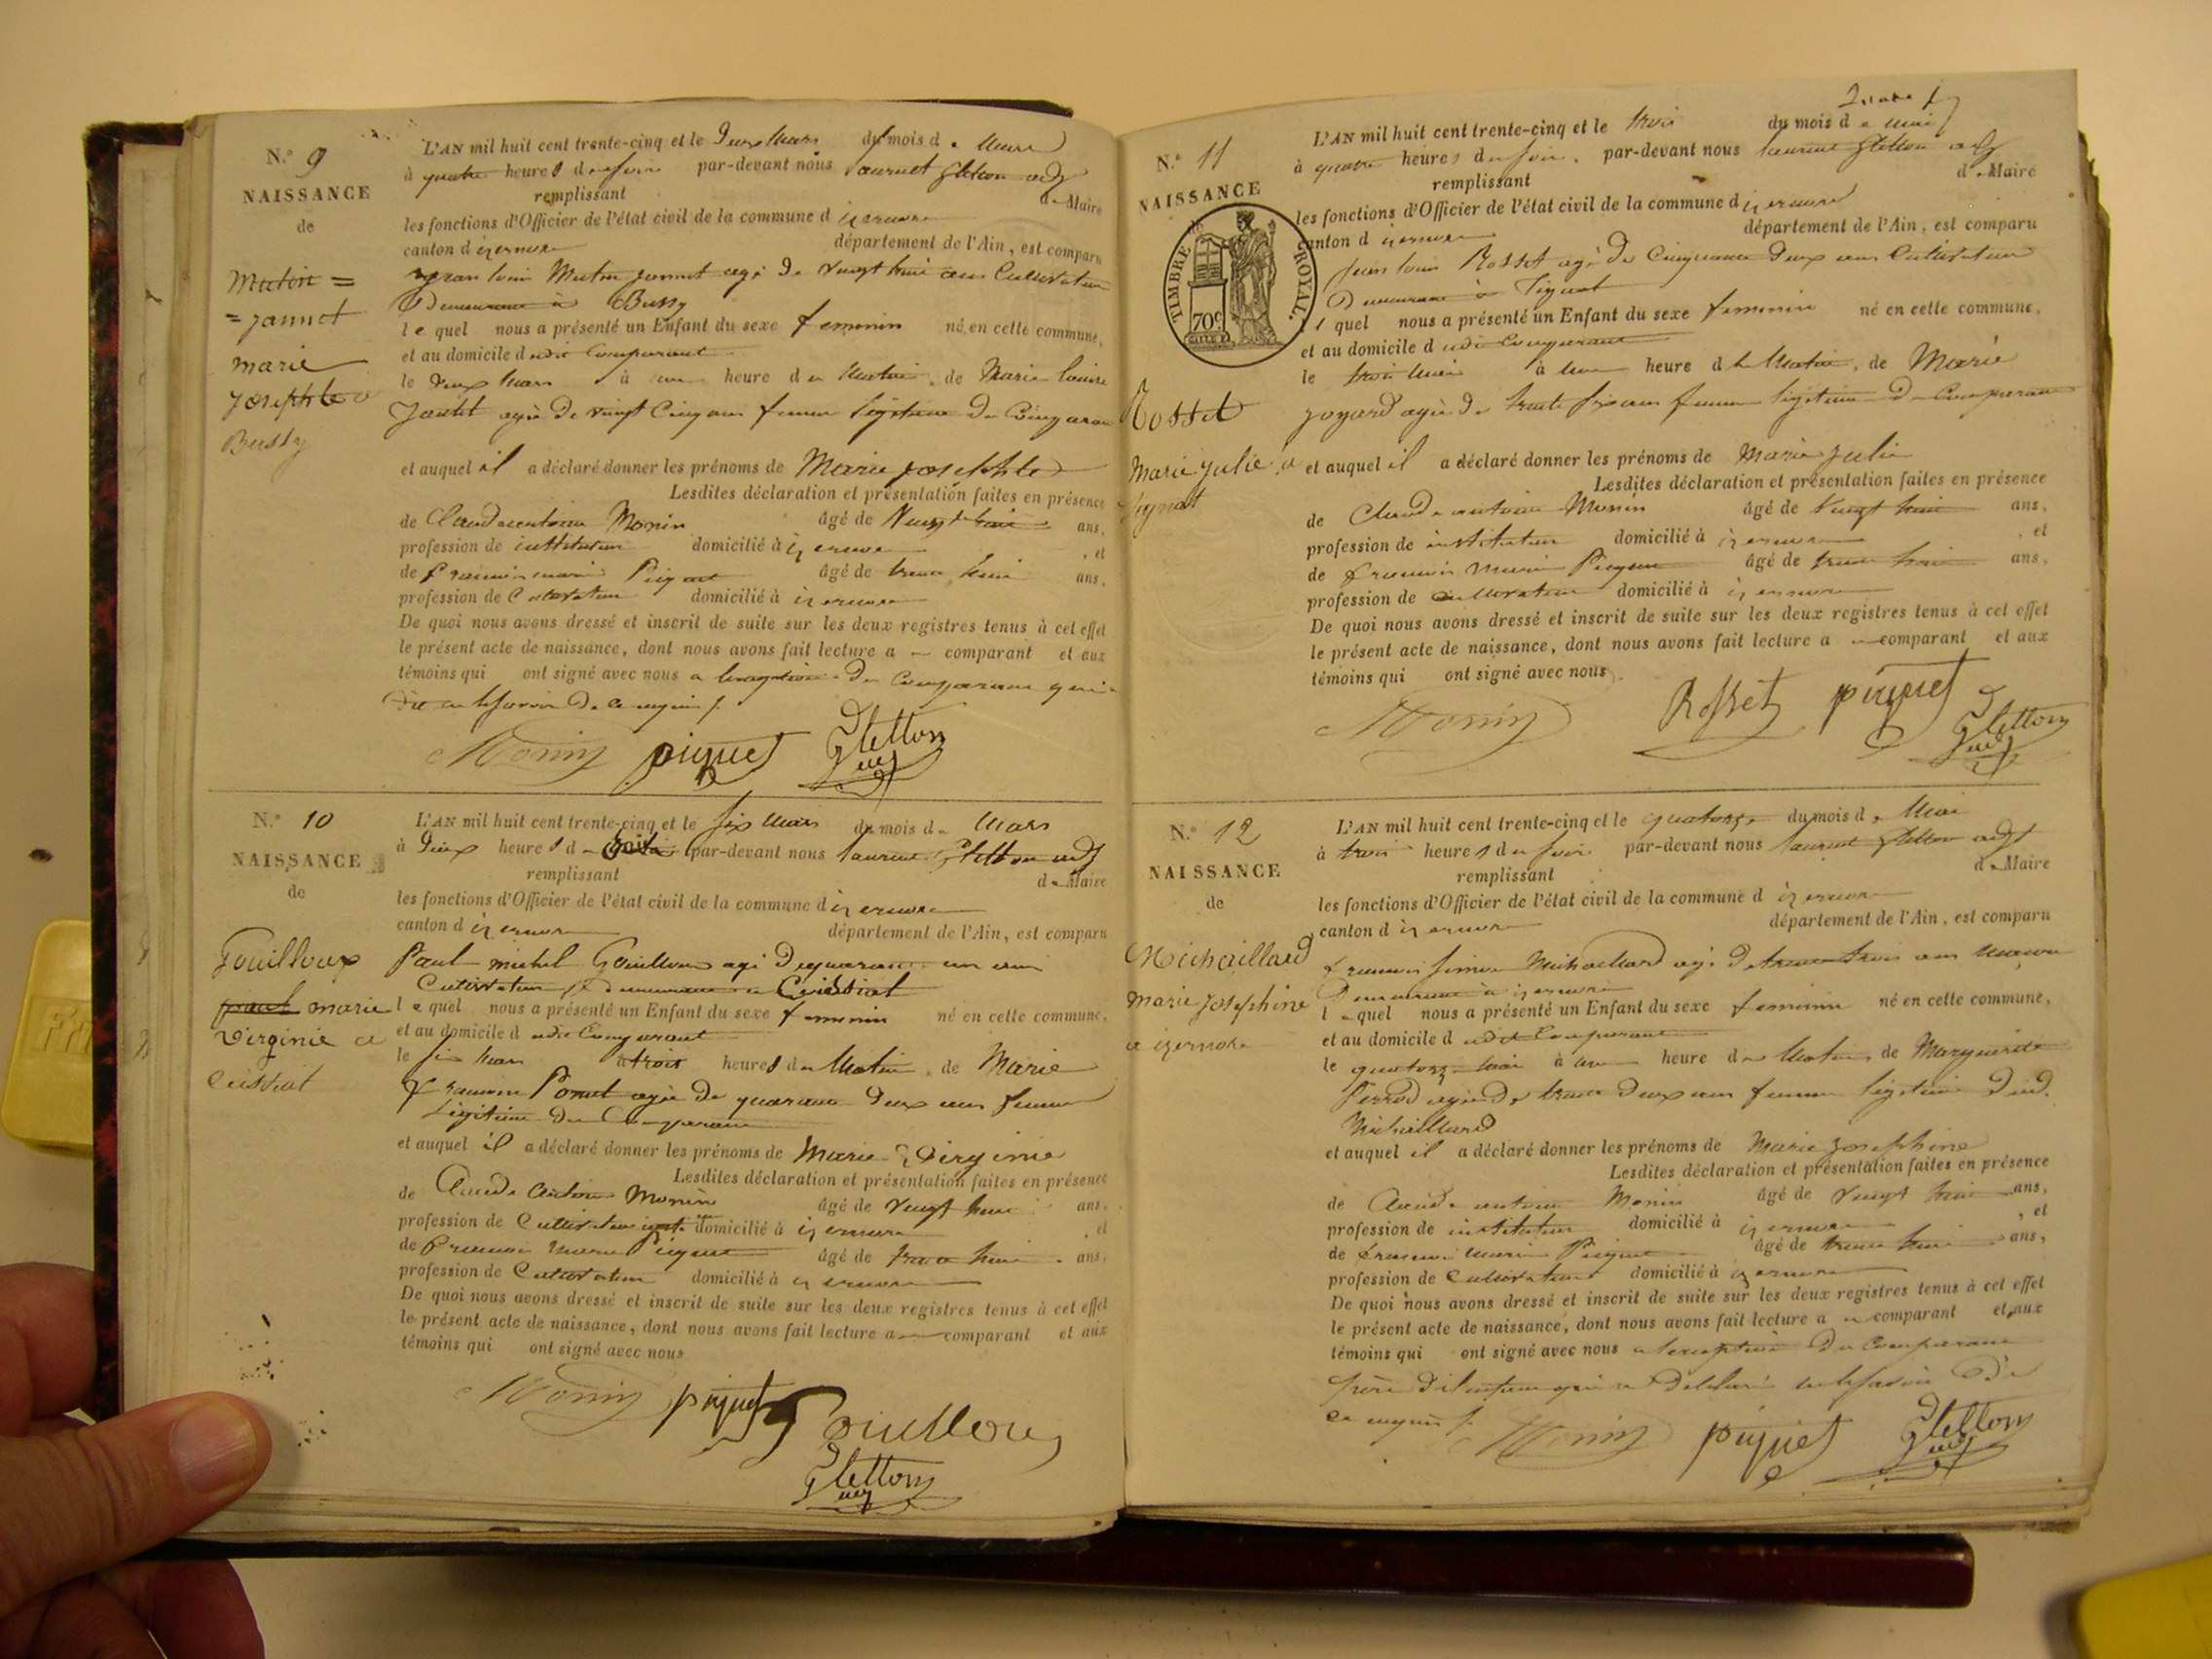 N.º 9
NAISSANCE
de
Mutin =
= Jannet
marie
Josephte a
Bussy
L'AN mil huit cent trente-cinq et le Deux Mars du mois de Mars
à quatre heures du soir par-devant nous Laurent Gletton adj
remplissant de Maire
les fonctions d'Officier de l'état civil de la commune d izernore
canton d izernore département de l'Ain, est comparu
Jean Louis Mutin Jannet agé de vingt huit ans Cultivateur
Demeurant à Bussy
le quel nous a présenté un Enfant du sexe feminin né en cette commune,
et au domicile dudit Comparant
le deux Mars à une heure du Matin, de Marie Louise
agée de vingt Cinq ans femme légitime du Comparant
et auquel il a déclaré donner les prénoms de Marie Josephte
Lesdites déclaration et présentation faites en présence
de Claude antoine Monin âgé de Vingt huit ans,
profession de instituteur domicilié à izernore, et
de françois marie Piquet âgé de trente huit ans,
profession de Cultivateur domicilié à izernore
De quoi nous avons dressé et inscrit de suite sur les deux registres tenus à cet effet
le présent acte de naissance, dont nous avons fait lecture a comparant et aux
témoins qui ont signé avec nous a l'exception du Comparant qui a
dit ne savoir De ce requis /.
Monin piquet Gletton adj
N.º 10
NAISSANCE
de
Gouilloux
paul marie
Virginie a
Ceissiat
L'AN mil huit cent trente-cinq et le six Mars du mois de Mars
à Deux heures du soir par-devant nous Laurent Gletton adj
remplissant de Maire
les fonctions d'Officier de l'état civil de la commune d izernore
canton d izernore département de l'Ain, est comparu
Paul michel Gouilloux agé De quarante un ans
Cultivateur demeurant a Ceissiat
le quel nous a présenté un Enfant du sexe feminin né en cette commune,
et au domicile dudit Comparant
le six Mars à trois heures du Matin, de Marie
françoise Ponet agée de quarante Deux ans femme
Légitime du Comparant
et auquel il a déclaré donner les prénoms de Marie Virginie
Lesdites déclaration et présentation faites en présence
de Claude Antoine Monin âgé de Vingt huit ans,
profession de Cultivateur domicilié à izernore, et
de françois Marie Piquet âgé de trente huit ans,
profession de Cultivateur domicilié à izernore
De quoi nous avons dressé et inscrit de suite sur les deux registres tenus à cet effet
le présent acte de naissance, dont nous avons fait lecture a comparant et aux
témoins qui ont signé avec nous
Monin piquet Gouilloux
Gletton adj
N.º 11
NAISSANCE
de
TIMBRE ROYAL.
70c
Rosset
Marie Julie a
Tignat
L'AN mil huit cent trente-cinq et le trois du mois de Mai
à quatre heures du soir, par-devant nous Laurent Gletton adj
remplissant de Maire
les fonctions d'Officier de l'état civil de la commune d izernore
canton d izernore département de l'Ain, est comparu
Jean Louis Rosset agé De Cinquante Deux ans Cultivateur
Demeurant à Tignat
le quel nous a présenté un Enfant du sexe feminin né en cette commune,
et au domicile dudit Comparant
le trois Mai à une heure du Matin, de Marie
Joyard agée de trente six ans femme légitime du Comparant
et auquel il a déclaré donner les prénoms de Marie Julie
Lesdites déclaration et présentation faites en présence
de Claude antoine Monin âgé de Vingt huit ans,
profession de instituteur domicilié à izernore, et
de françois Marie Piquet âgé de trente huit ans,
profession de cultivateur domicilié à izernore
De quoi nous avons dressé et inscrit de suite sur les deux registres tenus à cet effet
le présent acte de naissance, dont nous avons fait lecture a comparant et aux
témoins qui ont signé avec nous.
Monin Rosset piquet Gletton adj
N.º 12
NAISSANCE
de
Michaillard
marie Josephine
a izernore
L'AN mil huit cent trente-cinq et le quatorze du mois de Mai
à trois heures du soir par-devant nous Laurent Gletton adjt
remplissant de Maire
les fonctions d'Officier de l'état civil de la commune d izernore
canton d izernore département de l'Ain, est comparu
françois Michaillard agé de trente trois ans Maçon
Demeurant à izernore
le quel nous a présenté un Enfant du sexe feminin né en cette commune,
et au domicile dudit Comparant
le quatorze Mai à une heure du Matin, de Marguerite
Perrod agée De trente Deux ans femme légitime dud.
Michaillard
et auquel il a déclaré donner les prénoms de Marie Josephine
Lesdites déclaration et présentation faites en présence
de Claude antoine Monin âgé de Vingt huit ans,
profession de instituteur domicilié à izernore, et
de françois Marie Piquet âgé de trente huit ans,
profession de Cultivateur domicilié à izernore
De quoi nous avons dressé et inscrit de suite sur les deux registres tenus à cet effet
le présent acte de naissance, dont nous avons fait lecture a comparant et aux
témoins qui ont signé avec nous a l'exception du Comparant
père De l'enfant qui a Déclaré ne savoir De
ce requis /. Monin piquet Gletton adj